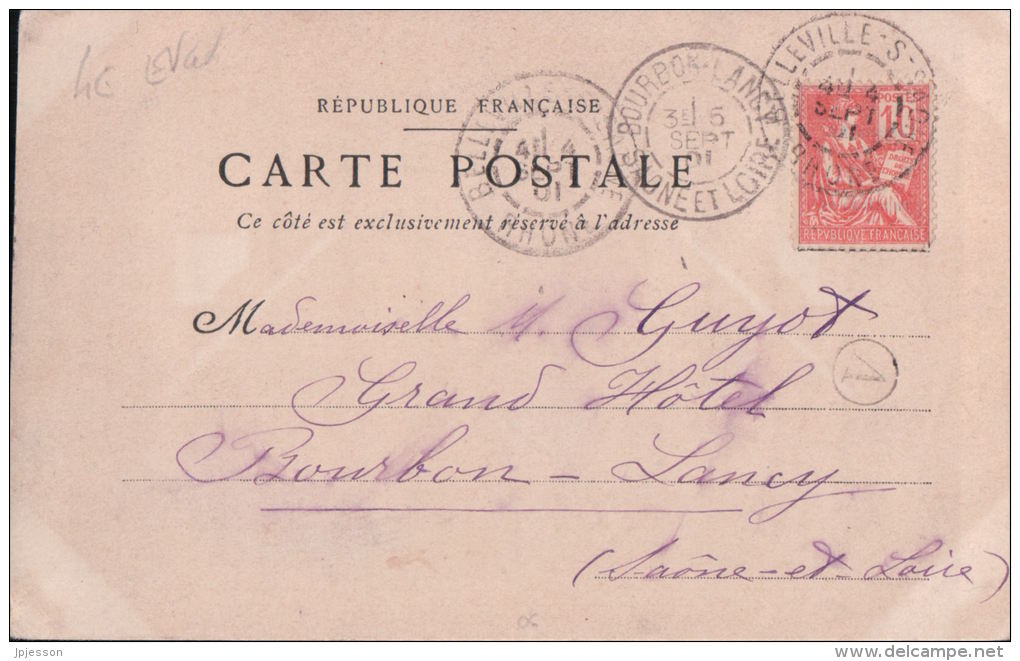 RÉPUBLIQUE FRANÇAISE
CARTE POSTALE
Ce côté est exclusivement réservé à l'adresse
BELLEVILLE
4E 4
SEPT
01
RHONE
BOURBON-LANCY
3E 5
SEPT
01
SAONE ET LOIRE
LLEVILLE-S-SAONE
4E 4
SEPT
01
RHONE
POSTES
10
DROITS DE L'HOMME
REPVBLIQVE FRANÇAISE
Mademoiselle M. Guyot
Grand Hôtel
Bourbon-Lancy
(Saône-et-Loire)
1
jpjesson
www.delcampe.net